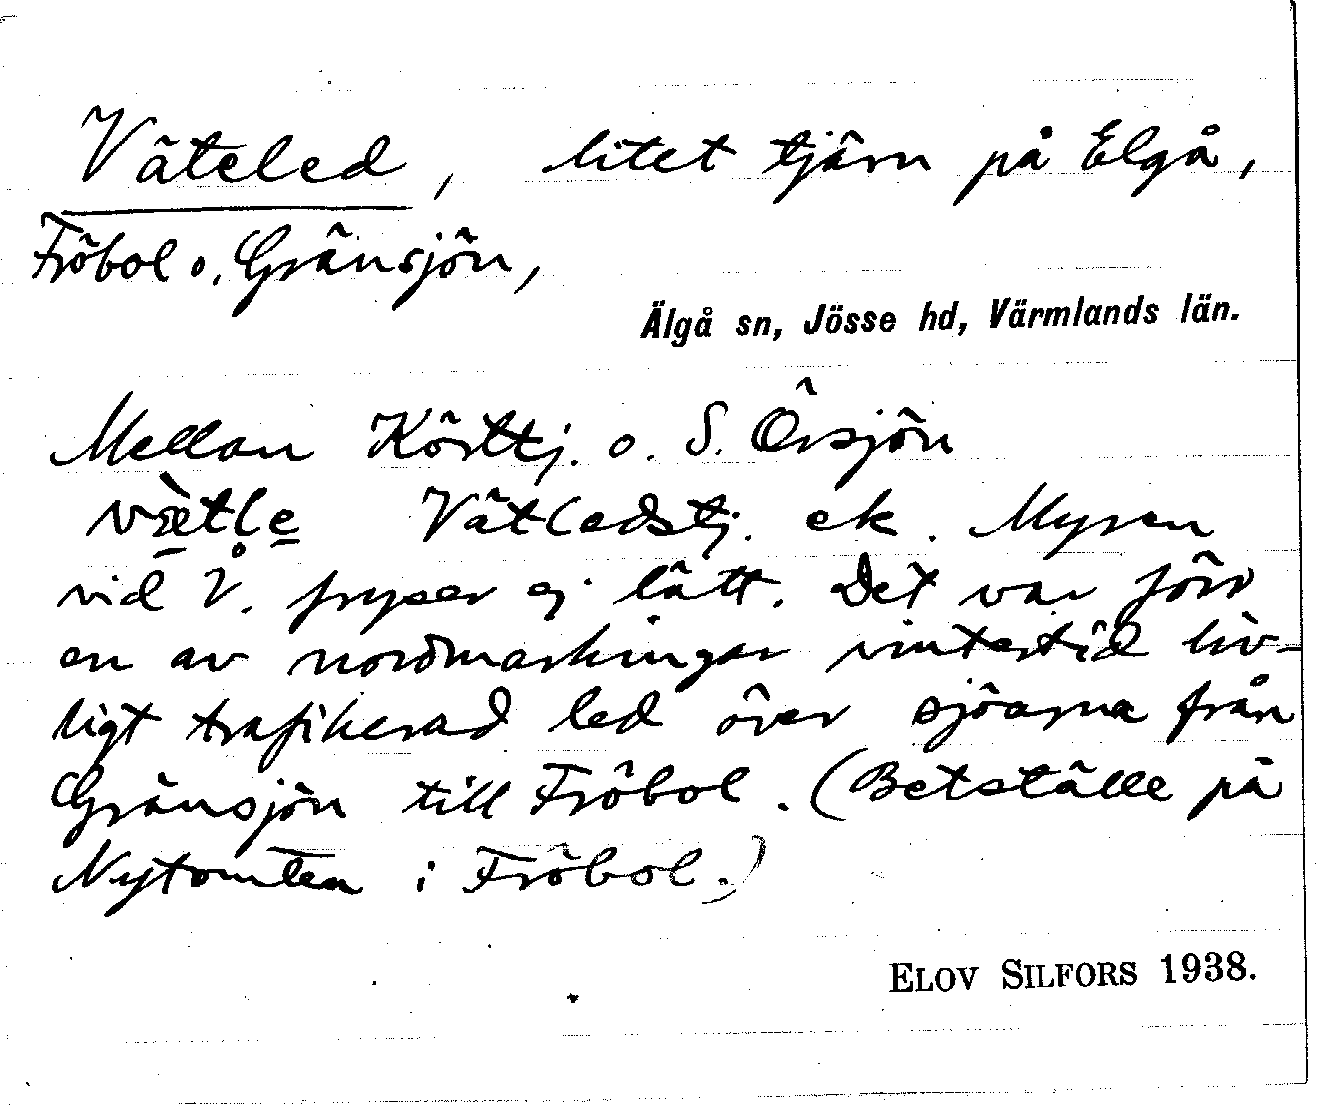 Väteled, litet tjärn på Elgå,
Fröbol o. Gränsjön,
Älgå sn, Jösse hd, Värmlands län.
Mellan Körttj. o. S. Örsjön
vætle Vätledstj. ek. Myren
vid V. fryser ej lätt. Det var förr
en av nordmarkingar vintertid liv-
ligt trafikerad led över sjöarna från
Gränsjön till Fröbol. (Betställe på
Nytomten i Fröbol.)
ELOV SILFORS 1938.